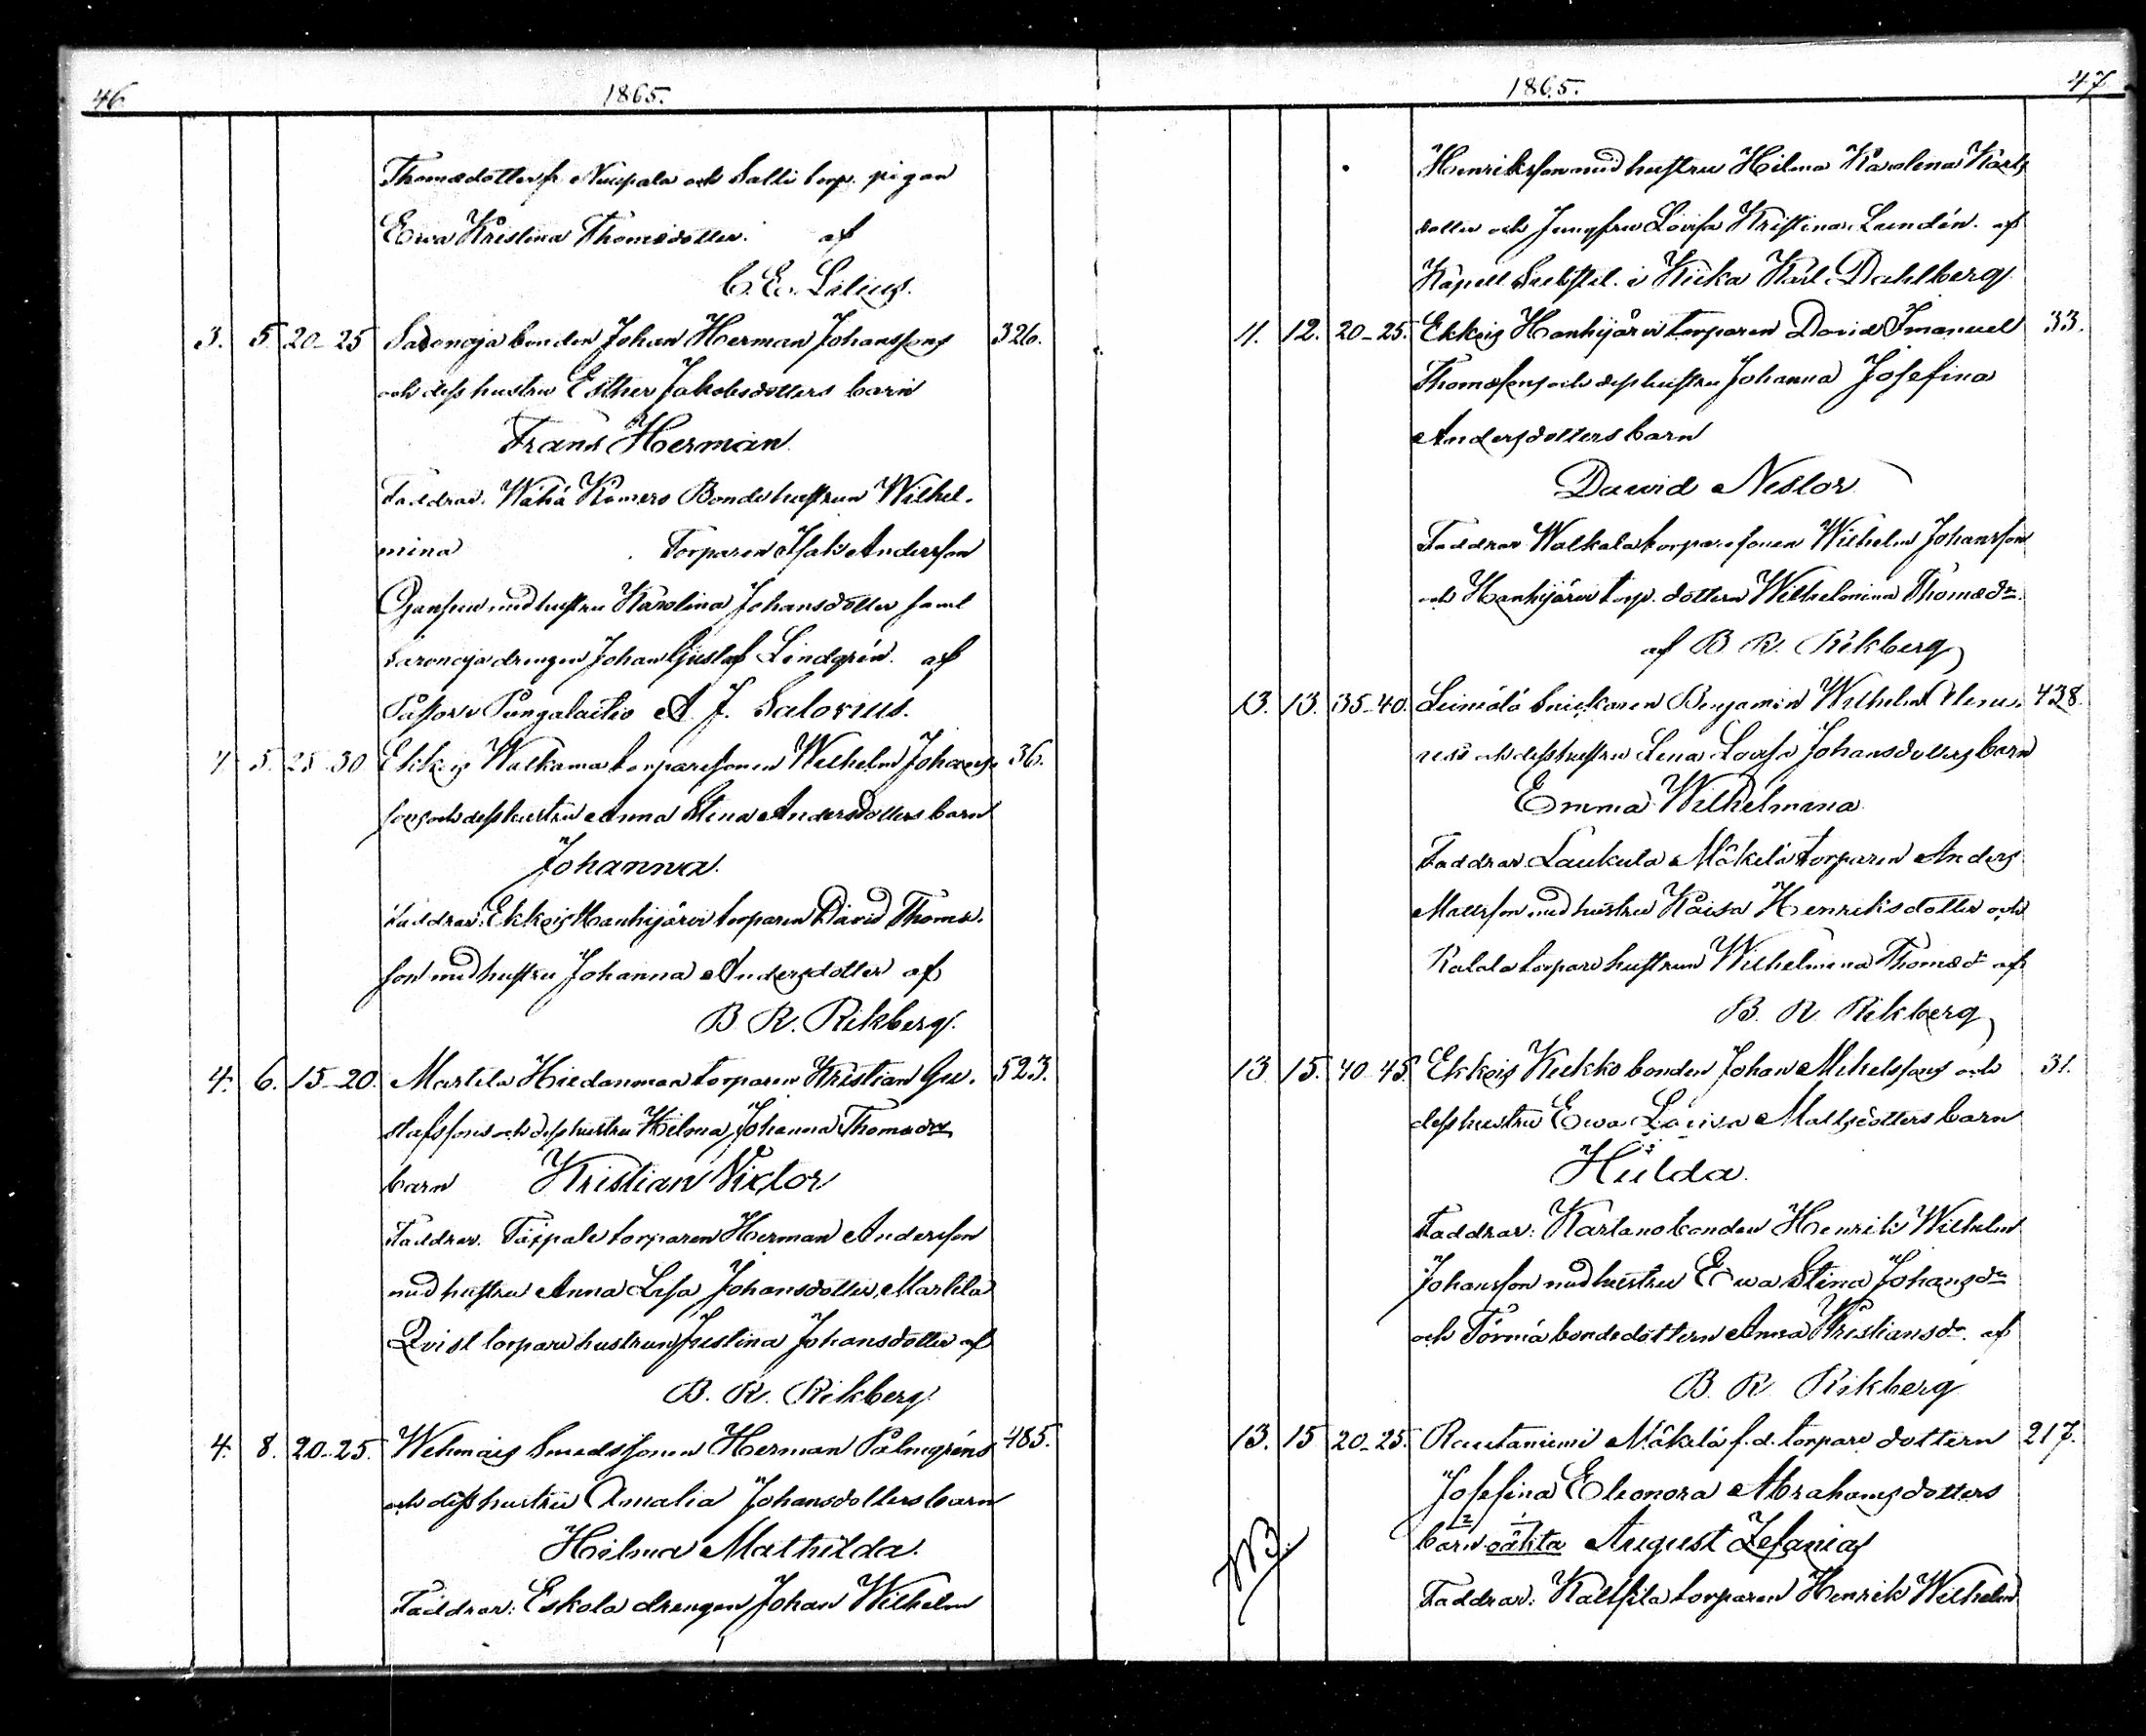 46 1865.
Thomædotter fr Nuupala och Salli torp. pigan
Ewa Kristina Thomædotter. af
C. E. Lilius.
3. 5. 20-25 Saronoja bonden Johan Herman Johanssons 326.
och dess hustru Esther Jakobsdotters barn
Frans Herman.
Faddrar. Wähä Knuers Bondehustrun Wilhel-
mina Torparen Isak Andersson
Ojansuu med hustru Karolina Johansdotter samt
Saronoja drengen Johan Gustaf Lindgrén. af
Pastor i Pungalaitio A. J. Salovius.
4 5. 25-30 Ekkois Walkama torparesonen Wilhelm Johans- 36.
sons och dess hustru Anna Stina Andersdotters barn
Johanna.
Faddrar: Ekkois Hanhijärvi torparen David Thomæ-
son med hustru Johanna Andersdotter af
B. R. Rikberg.
4. 6. 15-20. Martila Hiedanmaa torparen Kristian Gu- 523.
stafssons och dess hustru Hilma Johanna Thomædrs
barn Kristian Viktor
Faddrar. Täppale torparen Herman Andersson
med hustru Anna Lisa Johansdotter, Martila
Qvist torpare hustrun Justina Johansdotter af
B. R. Rikberg.
4. 8. 20-25. Wehmais Smedssonen Herman Palmgréns 485.
och dess hustru Amalia Johansdotters barn
Hilma Mathilda.
Faddrar: Eskola drengen Johan Wilhelm
1865. 47
Henriksson med hustru Hilma Karolina Karls
dotter och Jungfru Lovisa Kristina Lundén. af
Kapell Substit. i Kiika Karl Dahlberg.
11. 12. 20-25. Ekkois Hanhijärvi torparen David Imanuel 33.
Thomæsons och dess hustru Johanna Josefina
Andersdotters barn
David Nestor
Faddrar Walkala torparesonen Wilhelm Johansson
och Hanhijärvi torp. dottern Wilhelmina Thomædr.
af B. R. Rikberg
13. 13. 35-40. Leimälä snickaren Benjamin Wilhelm 438.
och dess hustru Lena Lovisa Johansdotters barn
Emma Wilhelmina
Faddrar Laukula Mäkelä torparen Anders
Mattsson med hustru Kaisa Henriksdotter och
Ralala torpare hustrun Wilhelmina Thomædr af
B. R. Rikberg
13. 15. 40-45. Ekkois Kiekko bonden Johan Mikelssons och 31.
dess hustru Ewa Lovisa Mattsdotters barn
Hulda.
Faddrar: Karlano bonden Henrik Wilhelm
Johansson med hustru Ewa Stina Johansdr
och Törmä bondedottern Anna Kristiansdr. af
B. R. Rikberg
13. 15 20-25. Rautaniemi Mäkelä f. d. torpare dottern 217.
Josefina Eleonora Abrahamsdotters
NB. barn oäkta August Zefanias
Faddrar: Kaltsila torparen Henrik Wilhelm